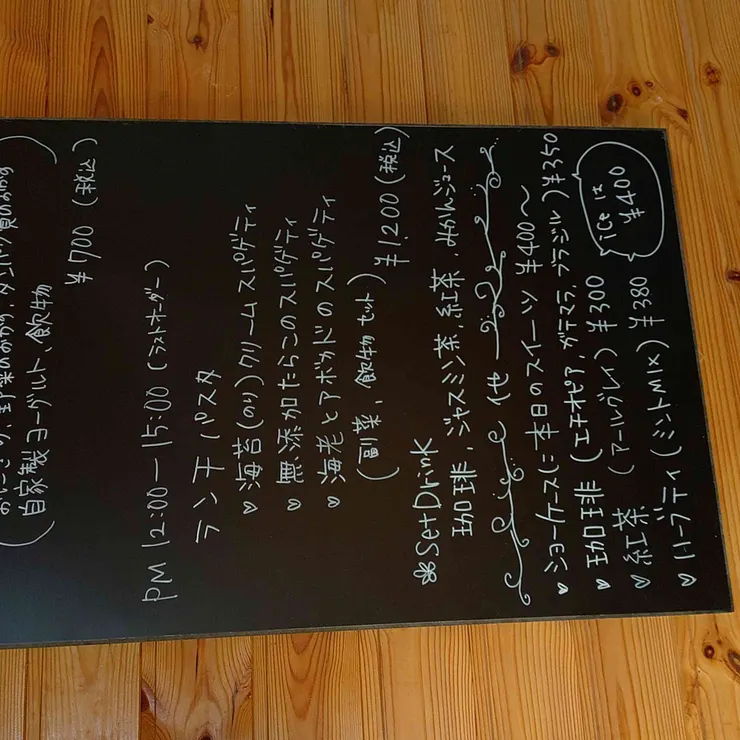 (おにぎり、野菜のおかず、タンパク質のおかず
自家製ヨーグルト、飲み物)
¥700 (税込)
PM 12:00ー15:00 (ラストオーダー)
ランチパスタ
海苔(のり)クリームスパゲティ
無添加たらこのスパゲティ
海老とアボカドのスパゲティ
(副菜、飲み物セット)
¥1,200 (税込)
SetDrink
珈琲、ジャスミン茶、紅茶、みかんジュース
他
ショーケースに本日のスイーツ ¥400〜
珈琲 (エチオピア、グテマラ、ブラジル) ¥350
紅茶 (アールグレイ) ¥300
ハーブティ (ミントMIX) ¥380
iceは
¥400